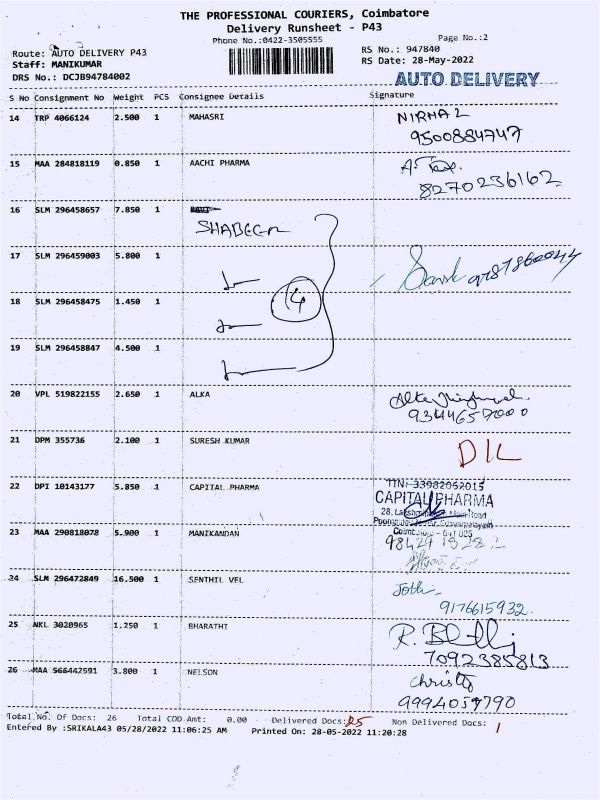 THE PROFESSIONAL COURIERS, Coimbatore
Delivery Runsheet - P43
Phone No.:0422-3505555 Page No.:2
Route: AUTO DELIVERY P43 RS No.: 947840
Staff: MANIKUMAR RS Date: 28-May-2022
DRS No.: DCJB94784002 AUTO DELIVERY
S No Consignment No Weight PCS Consignee Details Signature
14 TRP 4066124 2.500 1 MAHASRI NIRMAL
9500884747
15 MAA 284818119 0.850 1 AACHI PHARMA
8270236162
16 SLM 296458657 7.850 1
SHABEER
17 SLM 296459003 5.800 1
18 SLM 296458475 1.450 1 4
19 SLM 296458847 4.500 1
20 VPL 519822155 2.650 1 ALKA Alka
9344657000
21 DPM 355736 2.100 1 SURESH KUMAR DIL
22 DPI 10143177 5.850 1 CAPITAL PHARMA TIN: 33982062015
CAPITAL PHARMA
28, Main Road
23 MAA 290818078 5.900 1 MANIKANDAN
24 SLM 296472849 16.500 1 SENTHIL VEL Jothi
9176615932
25 NKL 3020965 1.250 1 BHARATHI R.
7092385813
26 MAA 566442591 3.800 1 NELSON Christy
9994059790
Total No. Of Docs: 26 Total COD Amt: 0.00 Delivered Docs: 25 Non Delivered Docs: 1
Entered By :SRIKALA43 05/28/2022 11:06:25 AM Printed On: 28-05-2022 11:20:28